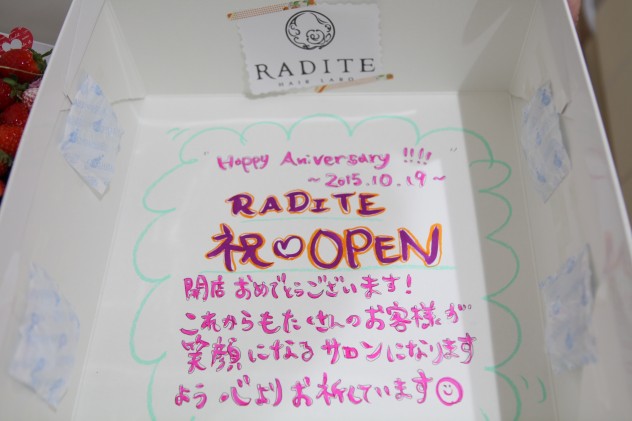 RADITE
HAIR LABO
"Happy Aniversary !!!!"
~2015.10.19~
RADITE
祝♡OPEN
開店おめでとうございます!
これからもたくさんのお客様が
笑顔になるサロンになります
よう心よりお祈しています☺